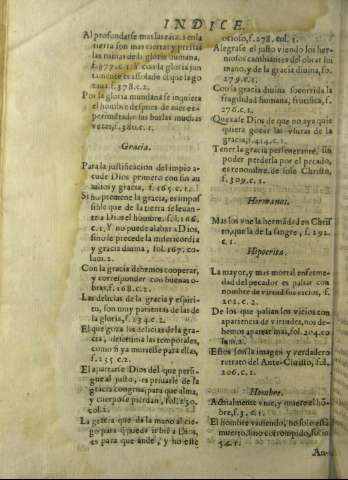 INDICE
Al profundarse mas las raizes en la
tierra son mas ciertas y
las ruinas de la gloria humana,
f.377.c.1. Y con la gloria
tamente es assolado el que la go
zaua f.378.c.2.
Por la gloria mundana se inquieta
el hombre despues de auer ex
perimentado sus burlas muchas
vezes, f.380.c.1.
Gracia.
Para la justificacion del impio a-
cude Dios primero con sin au
xilios y gracia, f.165.c.1.
Si no preuiene la gracia, es impos
sible que de la tierra se leuan-
te a Dios el hombre. fol.166.
c.1. Y no puede alabar a Dios,
sino le precede la misericordia
y gracia diuina, fol.167. co-
lum.2.
Con la gracia debemos cooperar,
y corresponder con buenas o-
bras, f.168.c.2.
Las delicias de la gracia y espiri-
tu, son muy parientas de las de
la gloria, f.234.c.2.
El que goza las delicias de la gra-
cia, desestima las temporales,
como si ya muriesse para ellas,
f.235.c.2.
El apartarse Dios del que persi-
gue al justo, es priuarle de la
gracia congrua, para que alma,
y cuerpo se pierdan, fol.250.
col.2.
La gracia que da la mano al cie-
go para q̃ pueda ir bie a Dios,
es para que ande, y no esté
ocioso, f.278. col.1.
Alegrase el justo viendo los her-
mosos cambiantes del obrar hu
mano, y de la gracia diuina, fo.
279.c.1.
Con la gracia diuina socorrida la
fragilidad humana, frutifica, f.
276.c.1.
Quexase Dios de que no aya quie
quiera gozar las viuras de la
gracia, f.414.c.1.
Tener la gracia perseuerante, sin
poder perderla por el pecado,
es renombre de solo Christo,
f.309.c.1.
Hermanos.
Mas los vne la hermãdad en Chris
to, que la de la sangre, f.292.
c.1.
Hipocrita.
La mayor, y mas mortal enferme-
dad del pecador es paliar con
nombre de virtud sus vicios, f.
202.c.2.
De los que palian los vicios con
apariencia de virtudes, nos de-
bemos apartar mas, fol.204. co
lum.2.
Estos son la imagen y verdadero
retrato del Ante-Christo, fol.
206.c.1.
Hombre.
Actualmente viue, y muere el hõ-
bre, f.3.c.1.
El hombre viuiendo, no solo està
muerto, sino corrompido, fol.
54.c.1.
An-